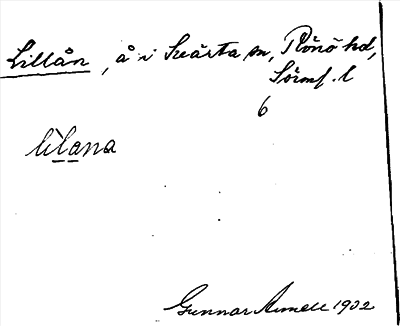 Lillån, å i Svärta sn, Rönö hd,
Sörml. l
6
lìlana
Gunnar Armell 1902